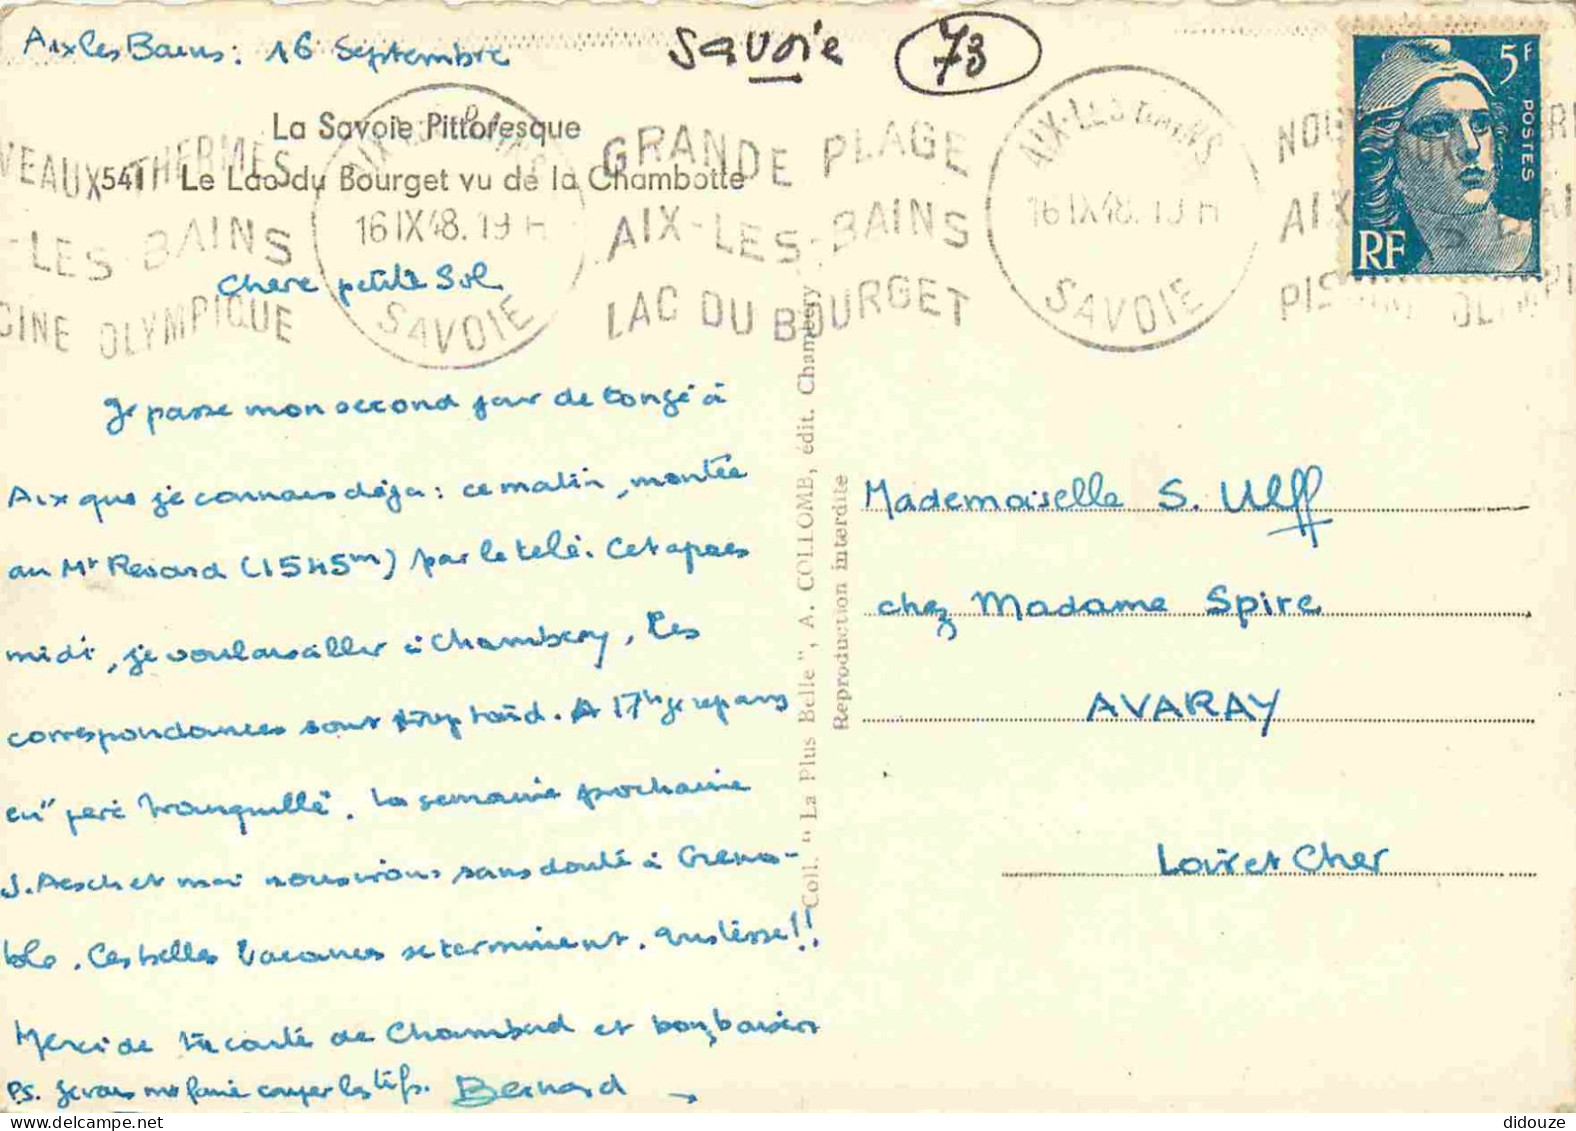 Aix les Bains: 16 Septembre
Savoie 73
La Savoie Pittoresque
541 Le Lac du Bourget vu de la Chambotte
VEAUX THERMES
-LES-BAINS
CINE OLYMPIQUE
AIX-LES-BAINS
16 IX 48. 19 H
SAVOIE
GRANDE PLAGE
AIX-LES-BAINS
LAC DU BOURGET
AIX-LES-BAINS
16 IX 48. 19 H
SAVOIE
5F
POSTES
RF
Chere petite Sol
Je passe mon second jour de congé à
Aix que je connais déja: ce matin, montée
au Mt Revard (1545m) par le télé. Cet apres
midi, je voulais aller à Chambery, les
correspondances sont trop tard. A 17h je repars
en "pere tranquille". La semaine prochaine
J. Aesch et moi nous irons sans doute à Greno-
ble. Ces belles vacances se terminent. tristesse!!
Merci de ta carte de Chambord et bons baisers
PS. Je vais me faire couper les tifs. Bernard
Coll. "La Plus Belle", A. COLLOMB, édit. Chambéry
Reproduction interdite
Mademoiselle S. Ulff
chez Madame Spire
AVARAY
Loir et Cher
didouze